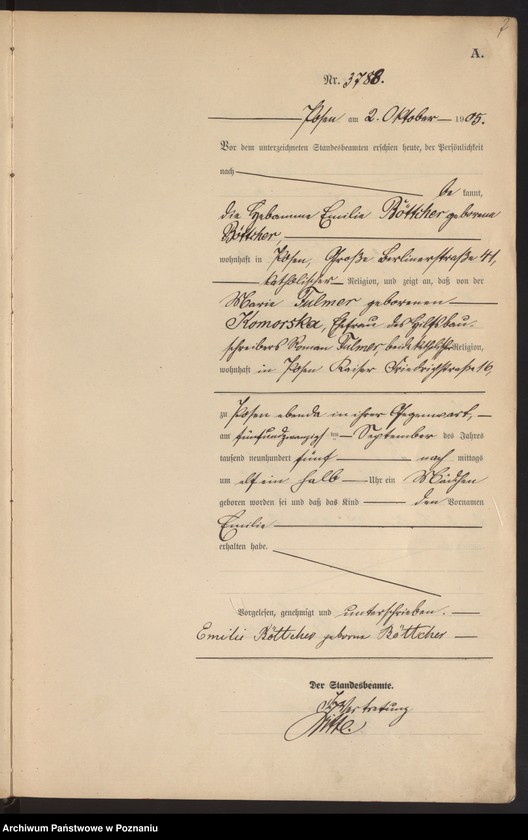 A.
Nr. 3788.
Posen am 2. Oktober 1905.
Vor dem unterzeichneten Standesbeamten erschien heute, der Persönlichkeit
nach
be kannt,
die Hebamme Emilie Böttcher geborene
Böttcher,
wohnhaft in Posen, Große Berlinerstraße 41,
katholischer Religion, und zeigte an, daß von der
Marie Tulmer geborenen
Komorska, Ehefrau des Hilfsbau-
schreibers Roman Tulmer, beide katholischer Religion,
wohnhaft in Posen Kaiser Friedrichstraße 16,
zu Posen ebenda in ihrer Gegenwart,
am fünfundzwanzigsten September des Jahres
tausend neunhundert fünf nach mittags
um elf ein halb Uhr ein Mädchen
geboren worden sei und daß das Kind den Vornamen
Emilie
erhalten habe.
Vorgelesen, genehmigt und unterschrieben.
Emilie Böttcher geborne Böttcher
Der Standesbeamte.
In Vertretung
Archiwum Państwowe w Poznaniu